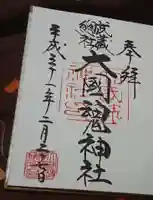 奉拝
武蔵
總社
大國魂神社
平成三十一年二月二十日